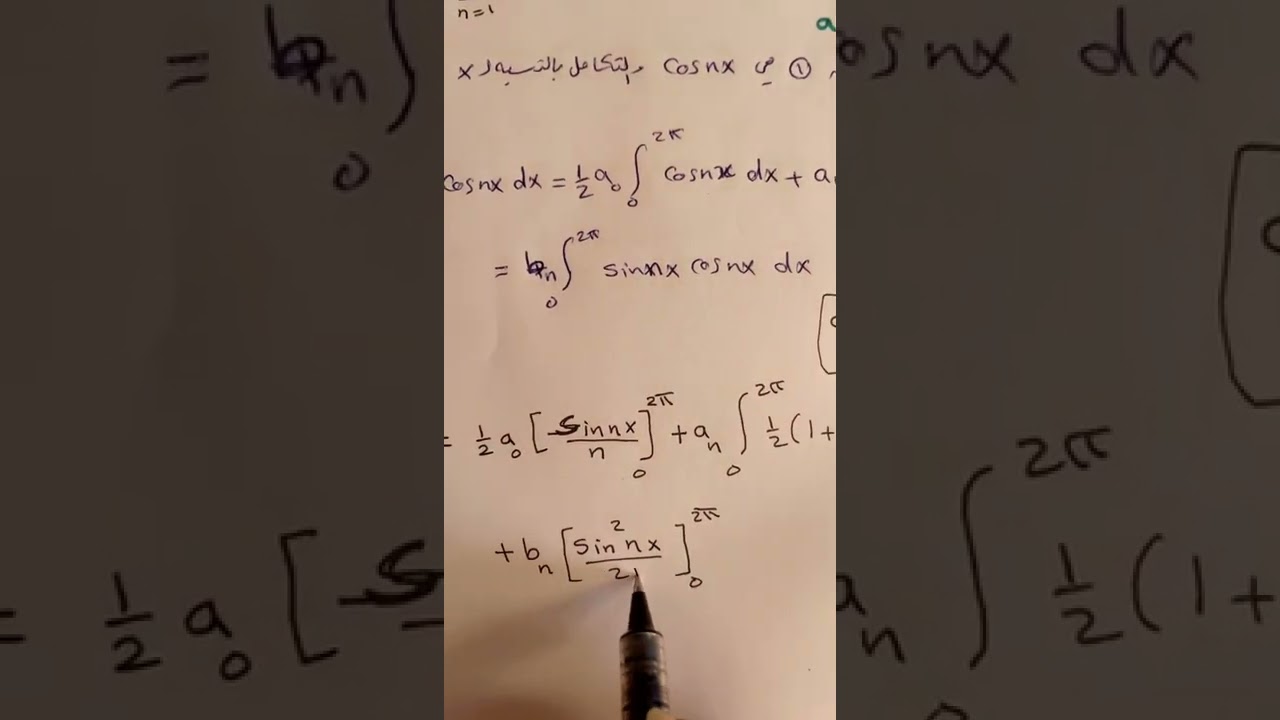 n=1
① في cosnx والتكامل بالنسبة لـ x
cosnx dx = 1/2 a₀ ∫₀^2π cosnx dx + a
= bₙ ∫₀^2π sinnx cosnx dx
= 1/2 a₀ [sinnx/n]₀^2π + aₙ ∫₀^2π 1/2 (1+
+ bₙ [sin²nx/2]₀^2π